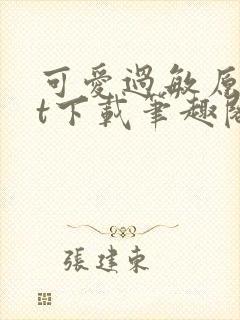 可愛過敏原
t下載筆趣閣
張建東